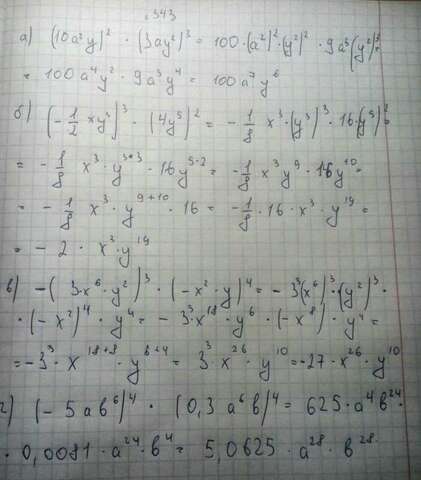 343
а) (10a²y)² · (3ay²)³ = 100 · (a²)² · (y²)² · 9a³(y²)³ =
= 100a⁴y² · 9a³y⁴ = 100a⁷y⁶
б) (-1/2 xy³)³ · (4y⁵)² = -1/8 x³ · (y³)³ · 16 · (y⁵)² =
= -1/8 x³ · y³*³ · 16y⁵·² = -1/8 x³y⁹ · 16y¹⁰ =
= -1/8 x³ · y⁹⁺¹⁰ · 16 = -1/8 · 16 · x³ · y¹⁹ =
= -2 · x³ · y¹⁹
в) -(3·x⁶·y²)³ · (-x²·y)⁴ = -3³(x⁶)³·(y²)³ ·
· (-x²)⁴ · y⁴ = -3³·x¹⁸·y⁶ · (-x⁸) · y⁴ =
= -3³ · x¹⁸⁺⁸ · y⁶⁺⁴ = 3³ · x²⁶ · y¹⁰ = -27 · x²⁶ · y¹⁰
г) (-5ab⁶)⁴ · (0,3a⁶b)⁴ = 625 · a⁴b²⁴ ·
· 0,0081 · a²⁴ · b⁴ = 5,0625 · a²⁸ · b²⁸